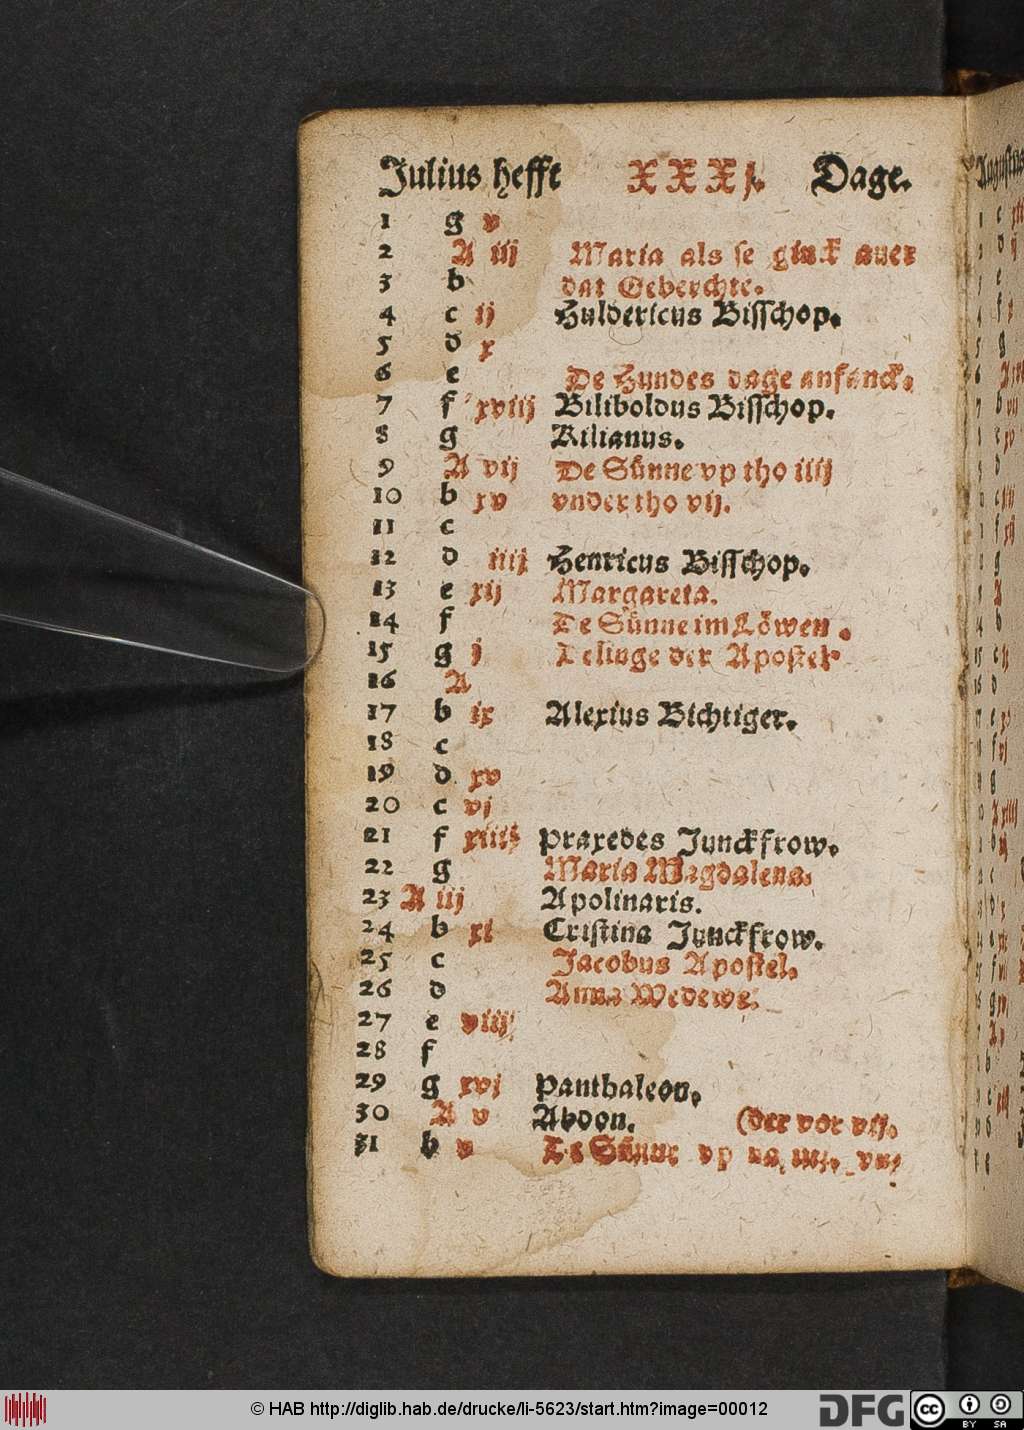 Julius hefft XXXj. Dage.
1 g v
2 A iij Maria als se ginck auer
3 b dat Geberchte.
4 c ij Huldericus Bisschop.
5 d x
6 e De Hundes dage anfanck.
7 f xviij Biliboldus Bisschop.
8 g Kilianus.
9 A vij De Sünne vp tho iiij
10 b xv vnder tho vij.
11 c
12 d iiij Henricus Bisschop.
13 e xij Margareta.
14 f De Sünne im Löwen.
15 g j Delinge der Apostel
16 A
17 b ix Alexius Bichtiger.
18 c
19 d xv
20 c vj
21 f xiiij Praxedes Junckfrow.
22 g Maria Magdalena.
23 A iij Apolinaris.
24 b xi Cristina Junckfrow.
25 c Jacobus Apostel.
26 d Anna Wedewe.
27 e viij
28 f
29 g xvj Panthaleon.
30 A v Abdon. (der vor vij.
31 b v De Sünne vp na
© HAB http://diglib.hab.de/drucke/li-5623/start.htm?image=00012
DFG
cc BY SA